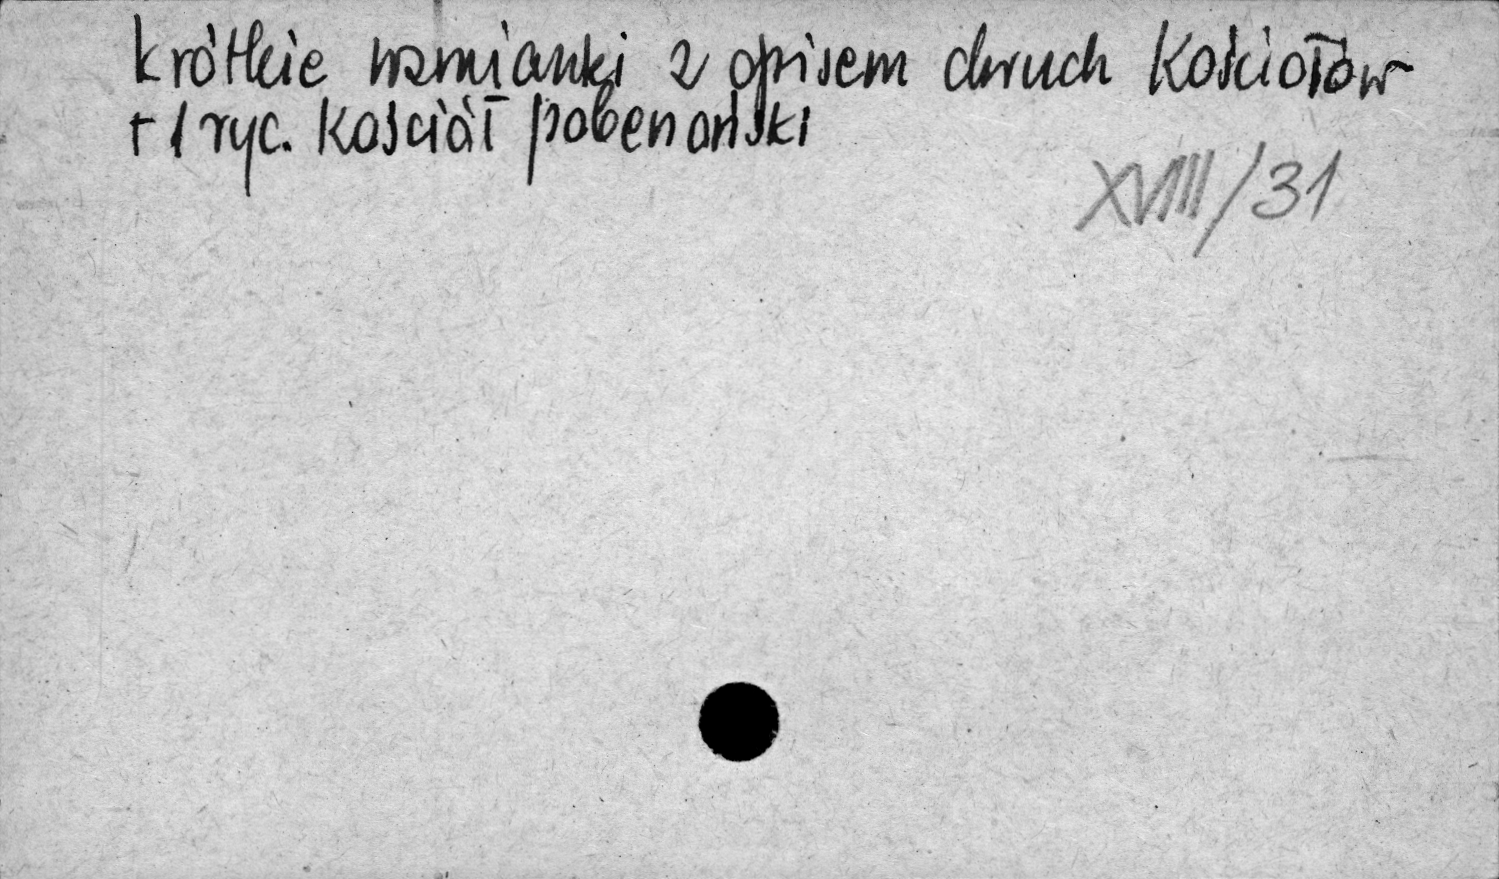 krótkie wzmianki z opisem dwuch kościołów
+ 1 ryc. kościół pobernański
XVIII/31